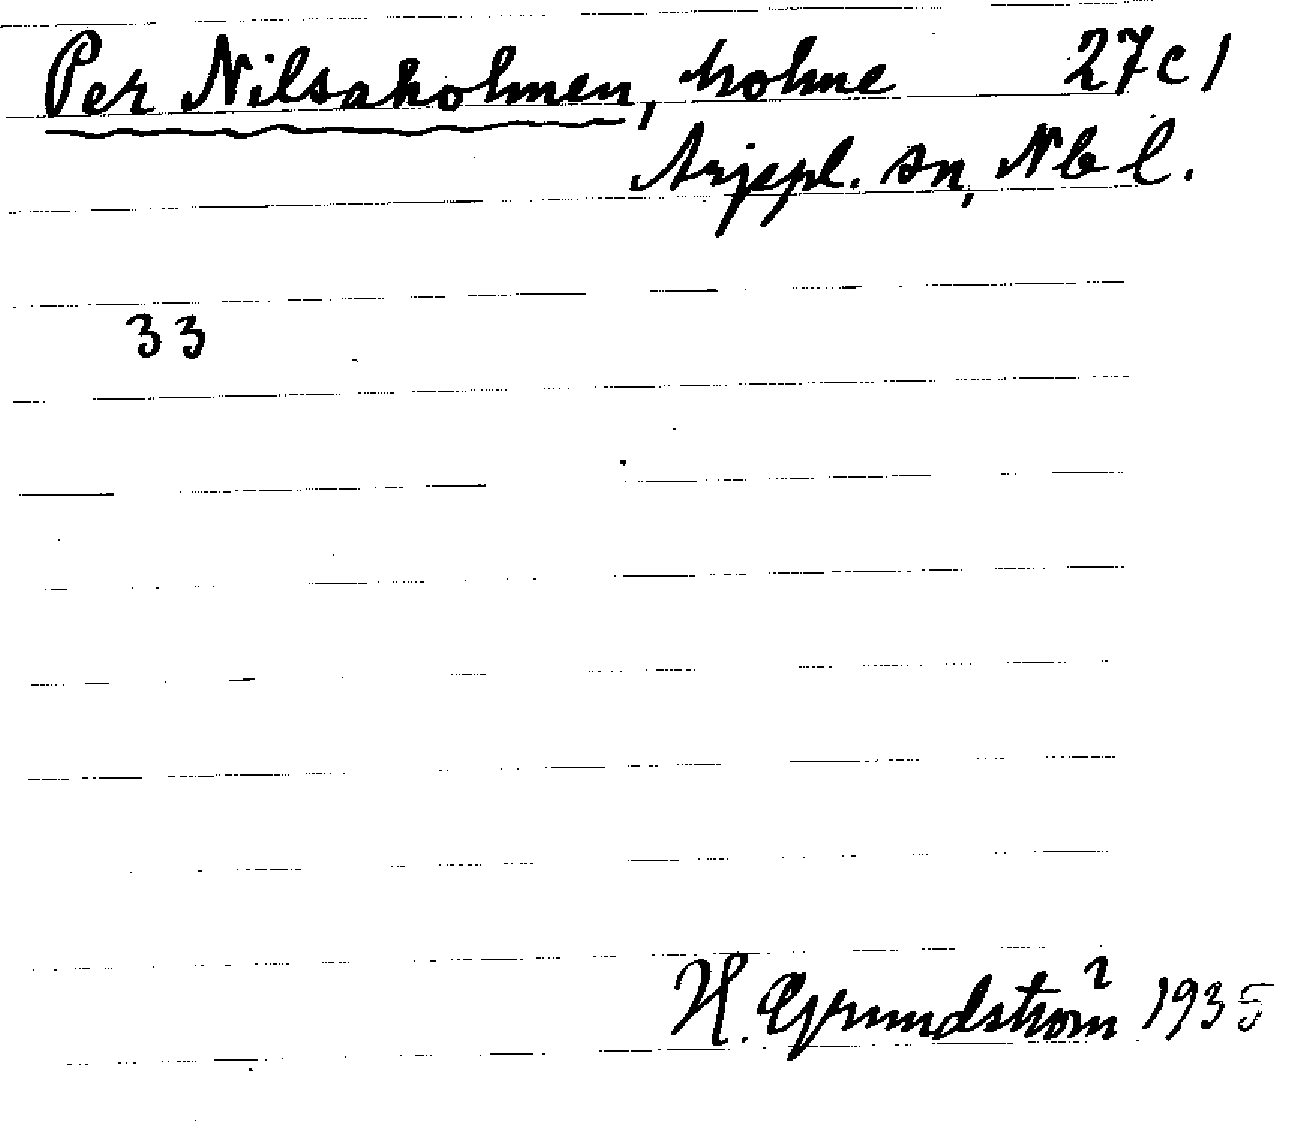 Per Nilsaholmen, holme 27c1
Arjepl. sn, Nb l.
33
H. Grundström 1935